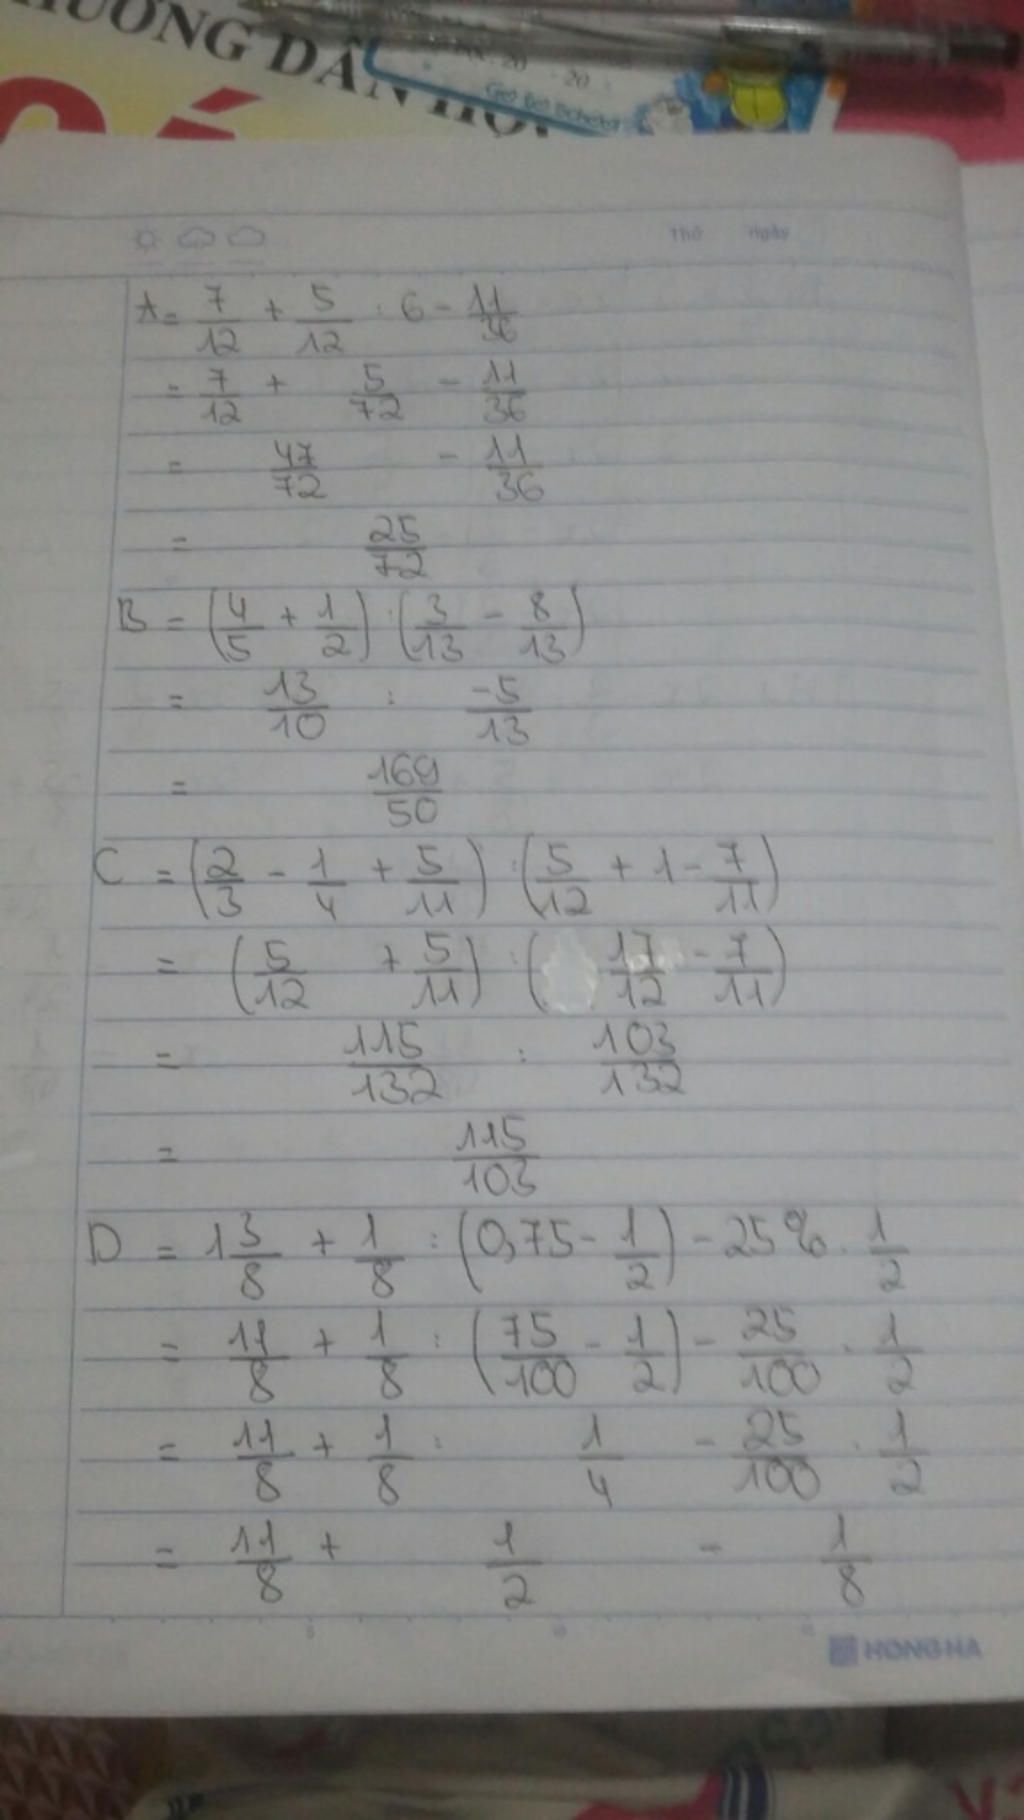 HƯỚNG DẪN HỌ
20 20
Thứ Ngày
A = 7/12 + 5/12 : 6 - 11/36
= 7/12 + 5/72 - 11/36
= 47/72 - 11/36
= 25/72
B = (4/5 + 1/2) : (3/13 - 8/13)
= 13/10 : -5/13
= 169/50
C = (2/3 - 1/4 + 5/11) : (5/12 + 1 - 7/11)
= (5/12 + 5/11) : (17/12 - 7/11)
= 115/132 : 103/132
= 115/103
D = 1 3/8 + 1/8 : (0,75 - 1/2) - 25% . 1/2
= 11/8 + 1/8 : (75/100 - 1/2) - 25/100 . 1/2
= 11/8 + 1/8 : 1/4 - 25/100 . 1/2
= 11/8 + 1/2 - 1/8
5 10 15
HONG HA